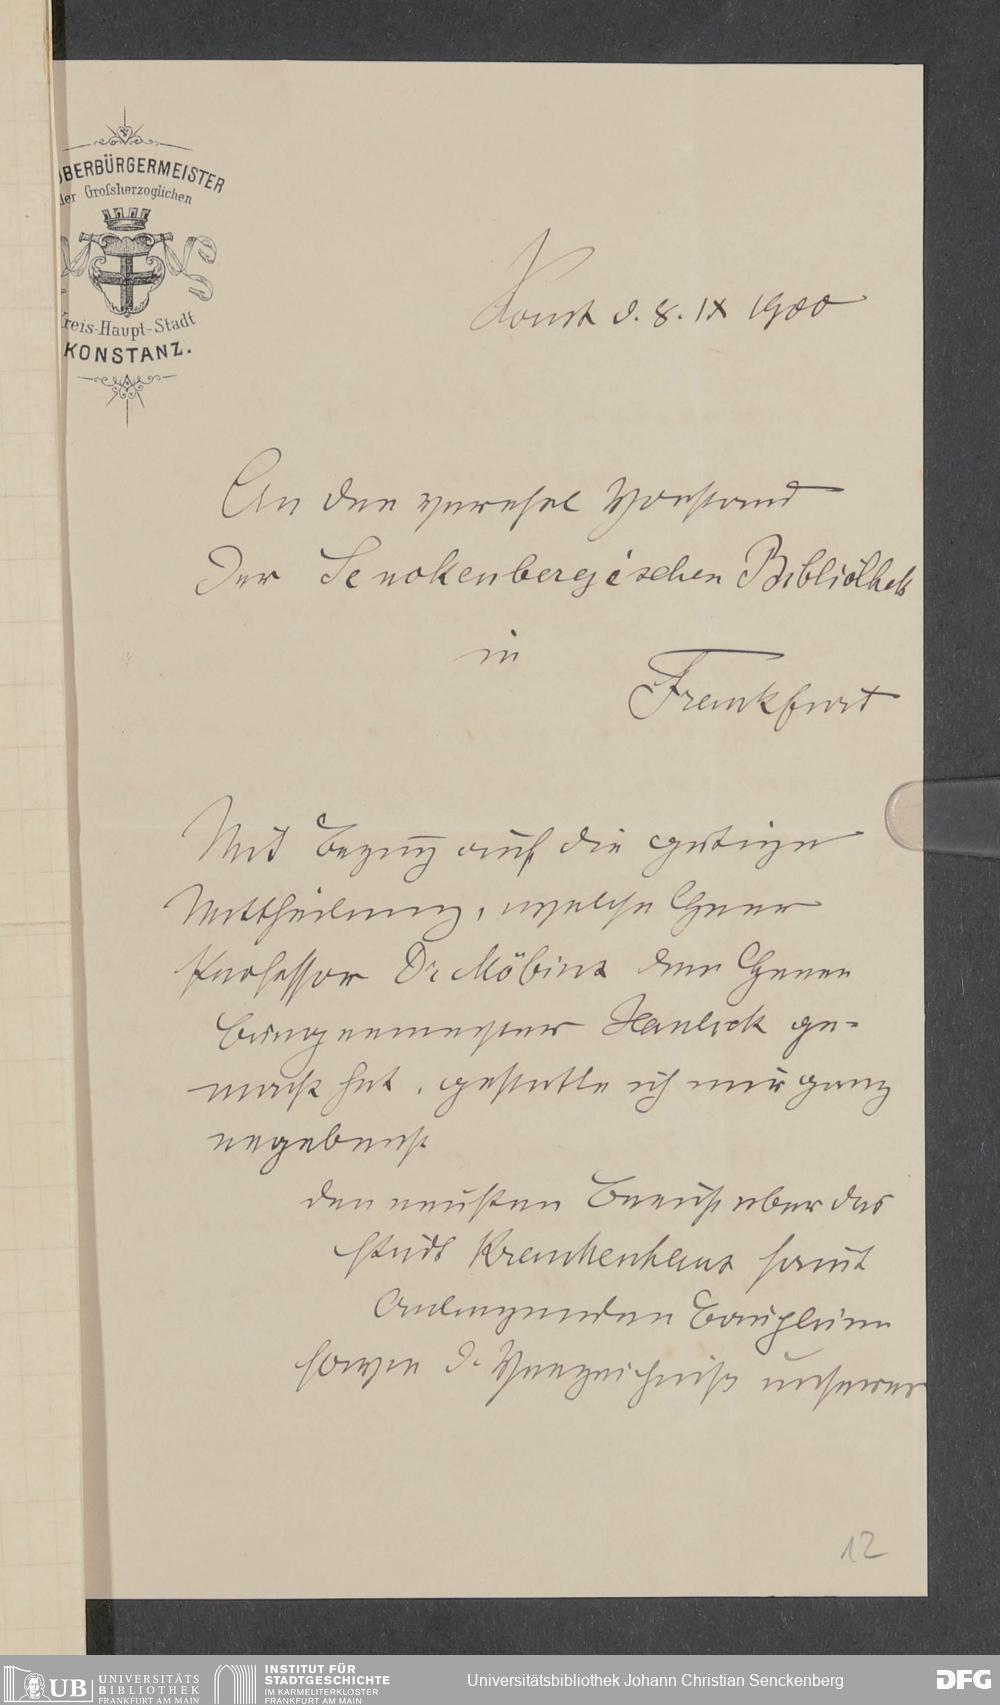 OBERBÜRGERMEISTER
der Großherzoglichen
Kreis-Haupt-Stadt
KONSTANZ.
Const d. 8. IX 1900
An den verehrl Vorstand
der Senckenbergischen Bibliothek
in
Frankfurt
Mit Bezug auf die gütige
Mittheilung, welche Herr
Professor Dr Möbius dem Herrn
Bürgermeister Haulick ge-
macht hat, gestatte ich mir ganz
ergebenst
den neusten Bericht über das
städt Krankenhaus samt
anliegenden Bauplänen
sowie d. Verzeichniß unserer
12
UB UNIVERSITÄTS
BIBLIOTHEK
FRANKFURT AM MAIN
INSTITUT FÜR
STADTGESCHICHTE
IM KARMELITERKLOSTER
FRANKFURT AM MAIN
Universitätsbibliothek Johann Christian Senckenberg
DFG